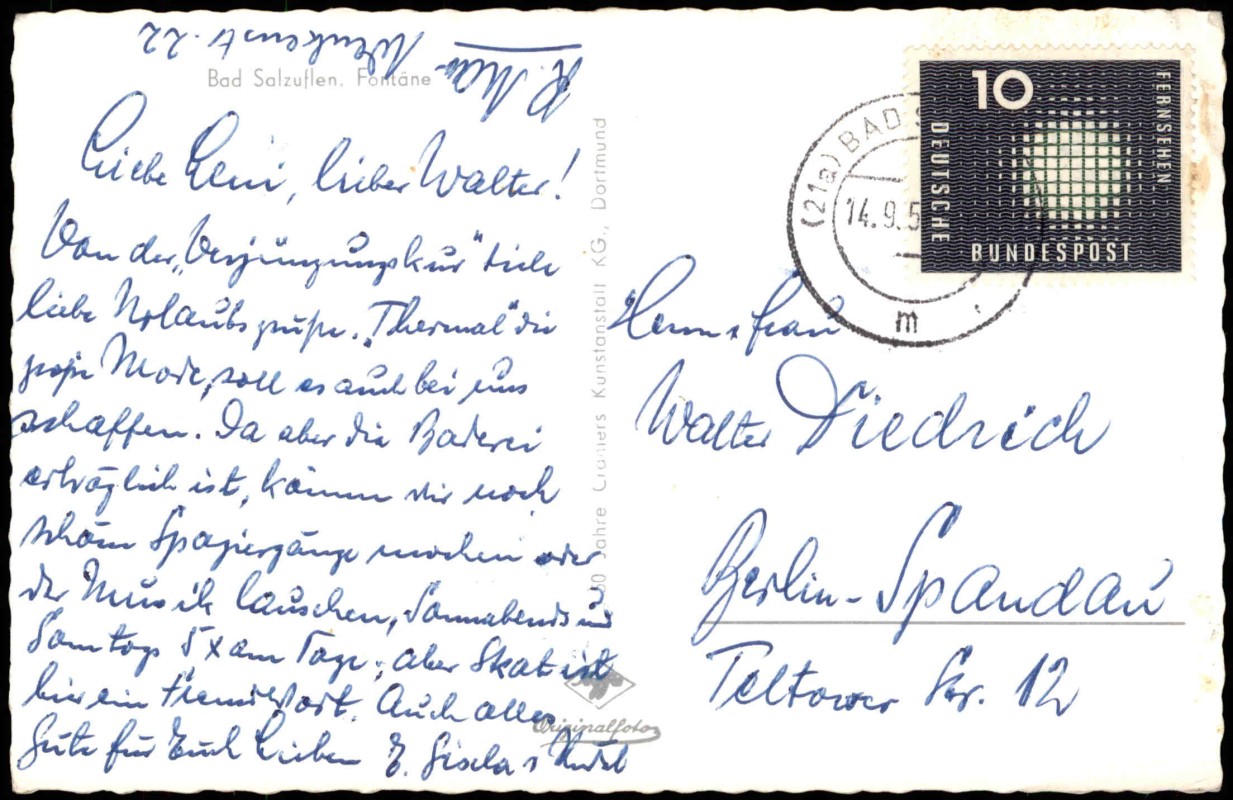 Wenkenstr. 22
Bad Salzuflen. Fontäne
Liebe Leni, lieber Walter!
Von der „Verjüngungskur" viele
liebe Urlaubsgrüße. „Thermal" die
große Mode, soll es auch bei uns
schaffen. Da aber die Baderei
erträglich ist, können wir noch
schöne Spaziergänge machen oder
der Musik lauschen, Sonnabends und
Sonntags 5x am Tage, aber Skat ist
hier ein Fremdwort. Auch alles
Gute für Euch Lieben E. Gisela &
Cramers Kunstanstalt KG., Dortmund
Originalfoto
10
FERNSEHEN
DEUTSCHE
BUNDESPOST
(21a) BAD S
14.9.5
m
Herrn u. Frau
Walter Diedrich
Berlin-Spandau
Teltower Str. 12